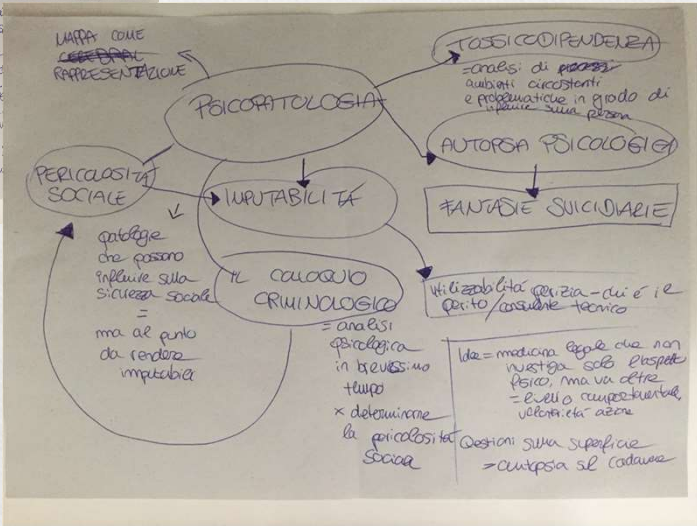 MAPPA COME
CEREBRAL
RAPPRESENTAZIONE
PSICOPATOLOGIA
TOSSICODIPENDENZA
= analisi di
ambienti circostanti
e problematiche in grado di
influire sulla persona
AUTOPSIA PSICOLOGICA
FANTASIE SUICIDIARIE
PERICOLOSITÀ
SOCIALE
IMPUTABILITÀ
patologie
che possono
influire sulla
sicurezza sociale
=
ma al punto
da rendere
imputabili
IL COLOQUIO
CRIMINOLOGICO
= analisi
psicologica
in brevissimo
tempo
x determinare
la pericolosità
sociale
utilizzabilità perizia - chi è il
perito / consulente tecnico
Idea = medicina legale che non
investiga solo l'aspetto
fisico, ma va oltre
= livello comportamentale,
volontarietà azione
Questioni sulla superficie
= autopsia sul cadavere